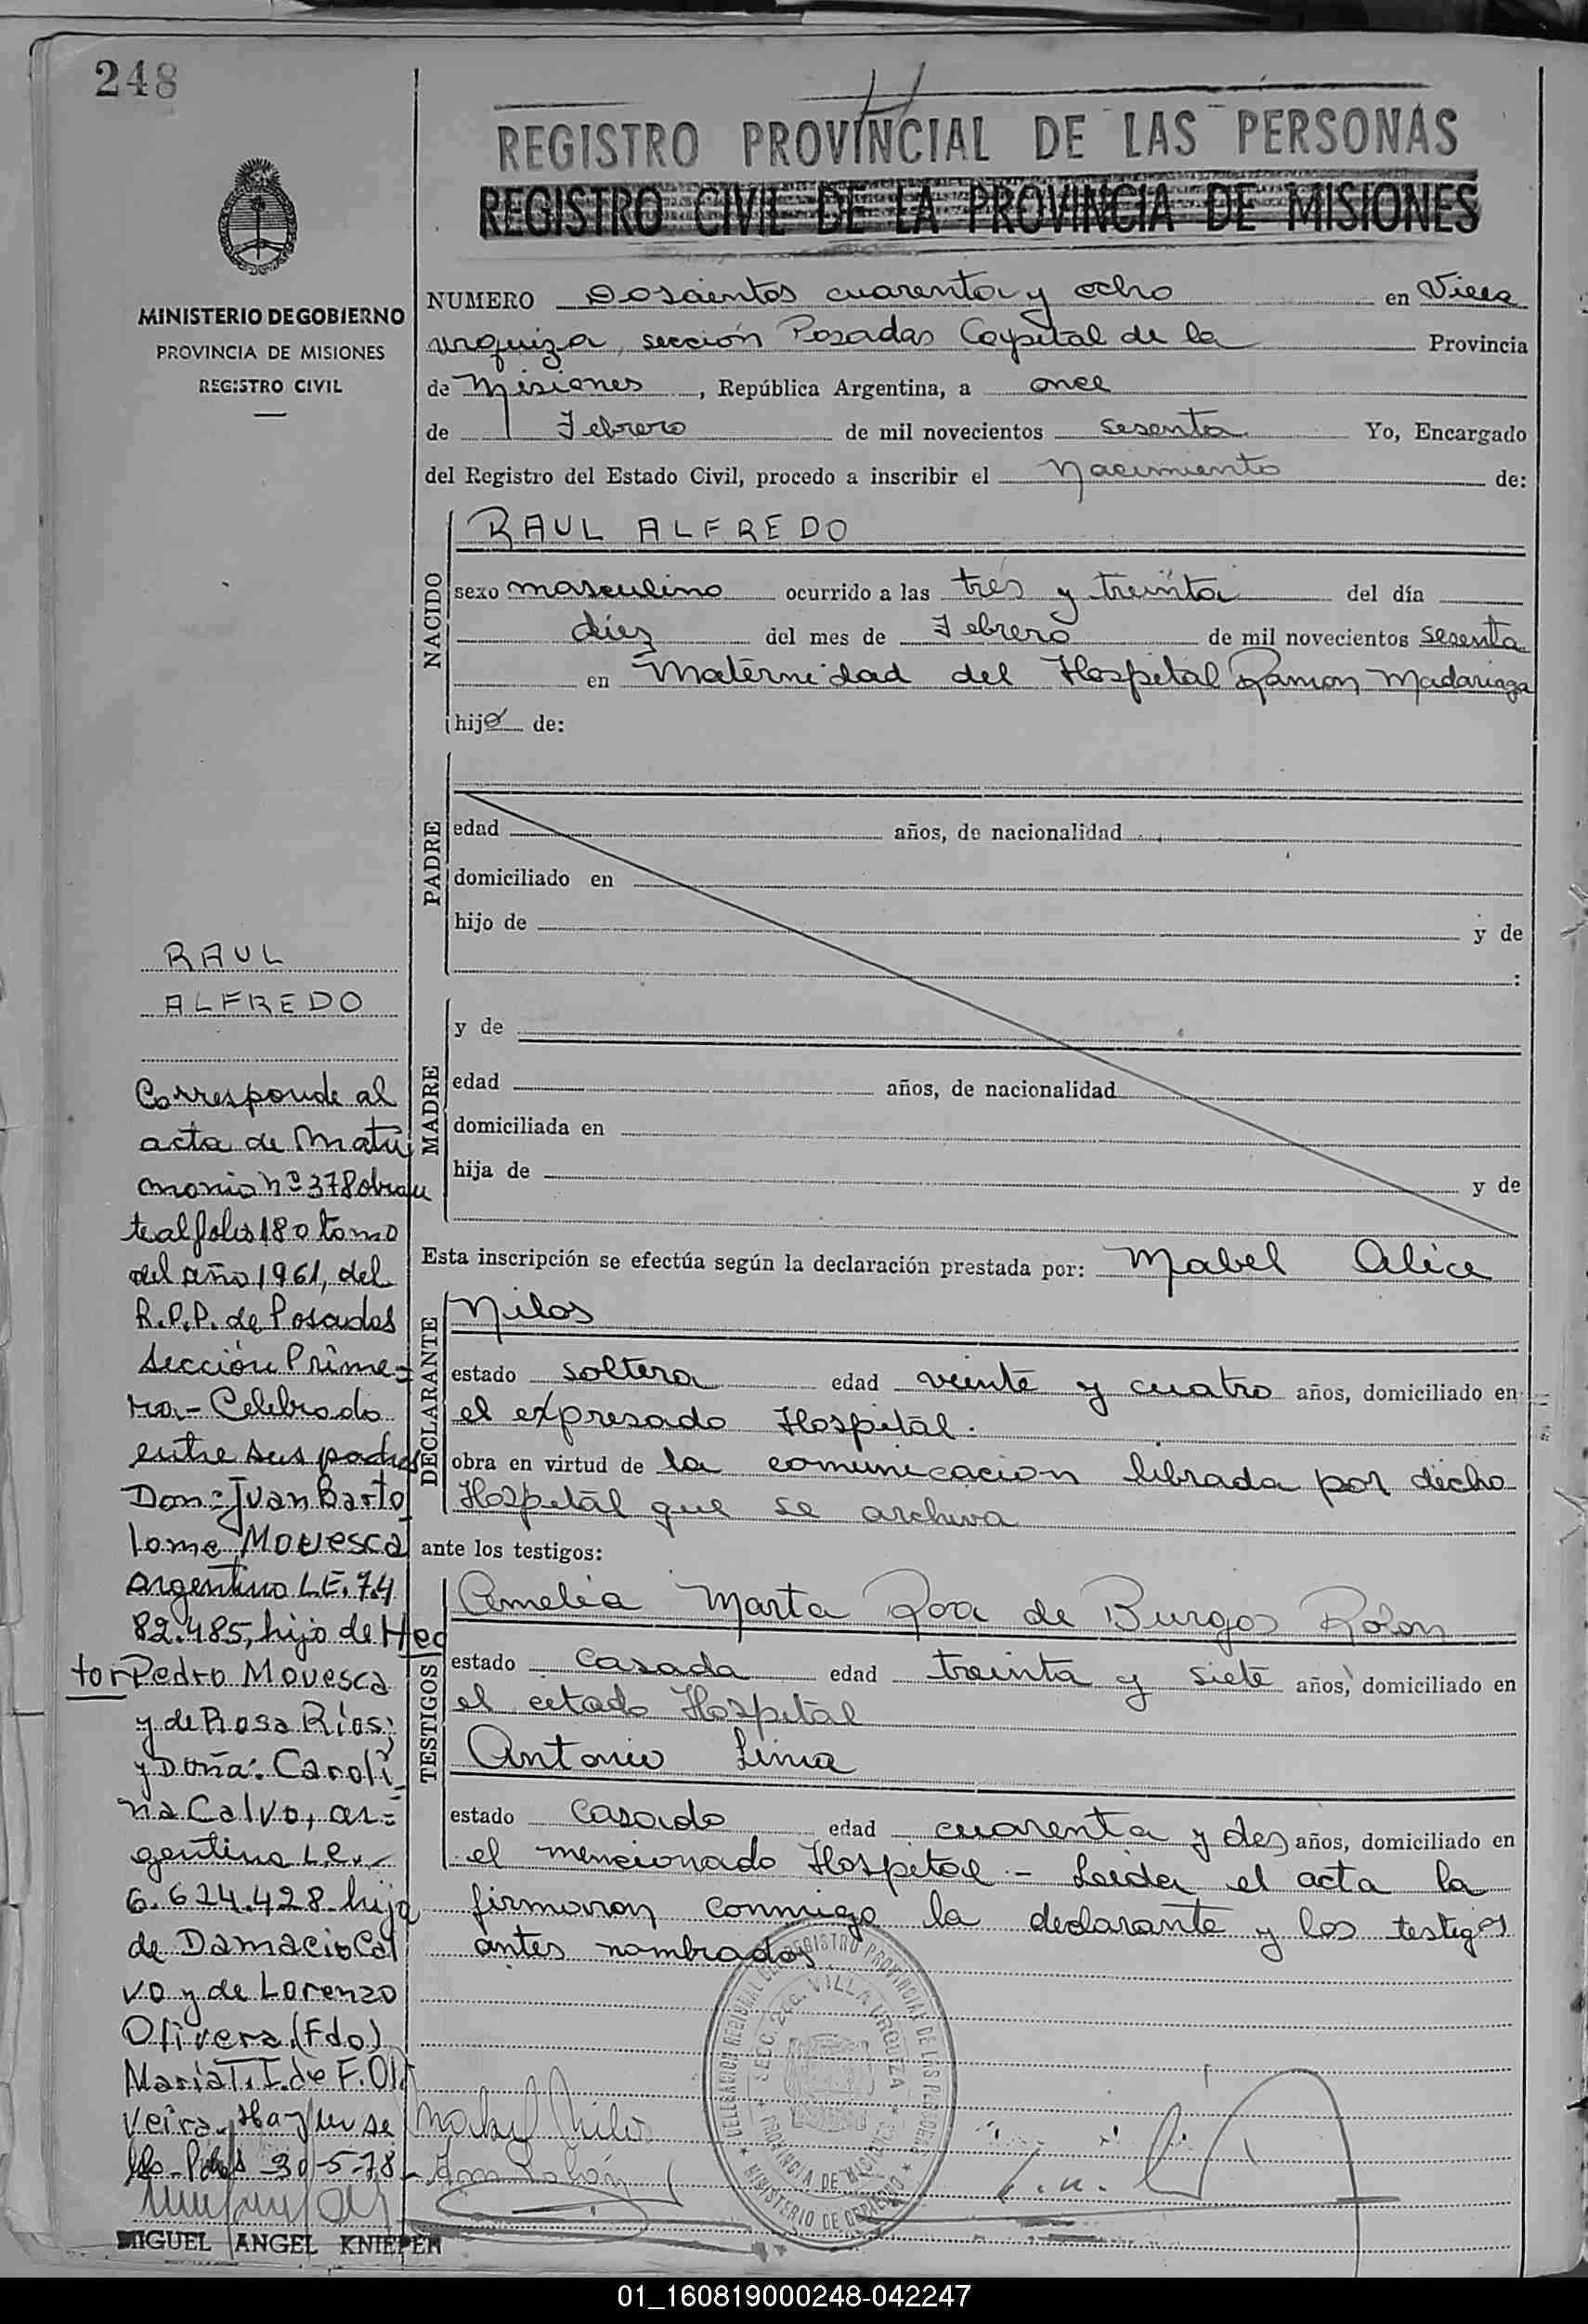 248
REGISTRO PROVINCIAL DE LAS PERSONAS
REGISTRO CIVIL DE LA PROVINCIA DE MISIONES
MINISTERIO DE GOBIERNO
PROVINCIA DE MISIONES
REGISTRO CIVIL
NUMERO Doscientos cuarenta y ocho en Villa
urquiza, sección Posadas Capital de la Provincia
de Misiones, República Argentina, a once
de Febrero de mil novecientos sesenta Yo, Encargado
del Registro del Estado Civil, procedo a inscribir el Nacimiento de:
NACIDO
RAUL ALFREDO
sexo masculino ocurrido a las tres y treinta del día
diez del mes de Febrero de mil novecientos sesenta
en Maternidad del Hospital Ramon Madariaga
hijo de:
PADRE
edad años, de nacionalidad
domiciliado en
hijo de y de
:
MADRE
y de
edad años, de nacionalidad
domiciliada en
hija de y de
Esta inscripción se efectúa según la declaración prestada por: Mabel Alice
DECLARANTE
Milos
estado soltera edad veinte y cuatro años, domiciliado en
el expresado Hospital.
obra en virtud de la comunicacion librada por dicho
Hospital que se archiva
ante los testigos:
TESTIGOS
Amelia Marta Roa de Burgos Rolon
estado Casada edad treinta y siete años, domiciliado en
el citado Hospital
Antonio Lima
estado Casado edad cuarenta y dos años, domiciliado en
el mencionado Hospital - Leida el acta la
firmaron conmigo la declarante y los testigos
antes nombrados
RAUL
ALFREDO
Corresponde al
acta de Matri
monio Nº 378 obran
te al folio 180 tomo
del año 1961, del
R.P.P. de Posadas
Sección Prime=
ra.- Celebrado
entre sus padres
Don: Juan Barto
lome Movesca
Argentino L.E. 7.4
82.485, hijo de Hec
tor Pedro Movesca
y de Rosa Ríos;
y Doña: Caroli
na Calvo, ar=
gentina L.C.
6.624.428 hija
de Damacio Cal
vo y de Lorenzo
Olivera (Fdo)
Maria T. I. de F. Oli
veira. Hay un se
llo - Pdas 30-5-78
MIGUEL ANGEL KNIEPER
Mabel Milos
DELEGACION REGIONAL DEL REGISTRO PROVINCIAL DE LAS PERSONAS
SECC. 2da. VILLA URQUIZA
PROVINCIA DE MISIONES
MINISTERIO DE GOBIERNO
01_160819000248-042247